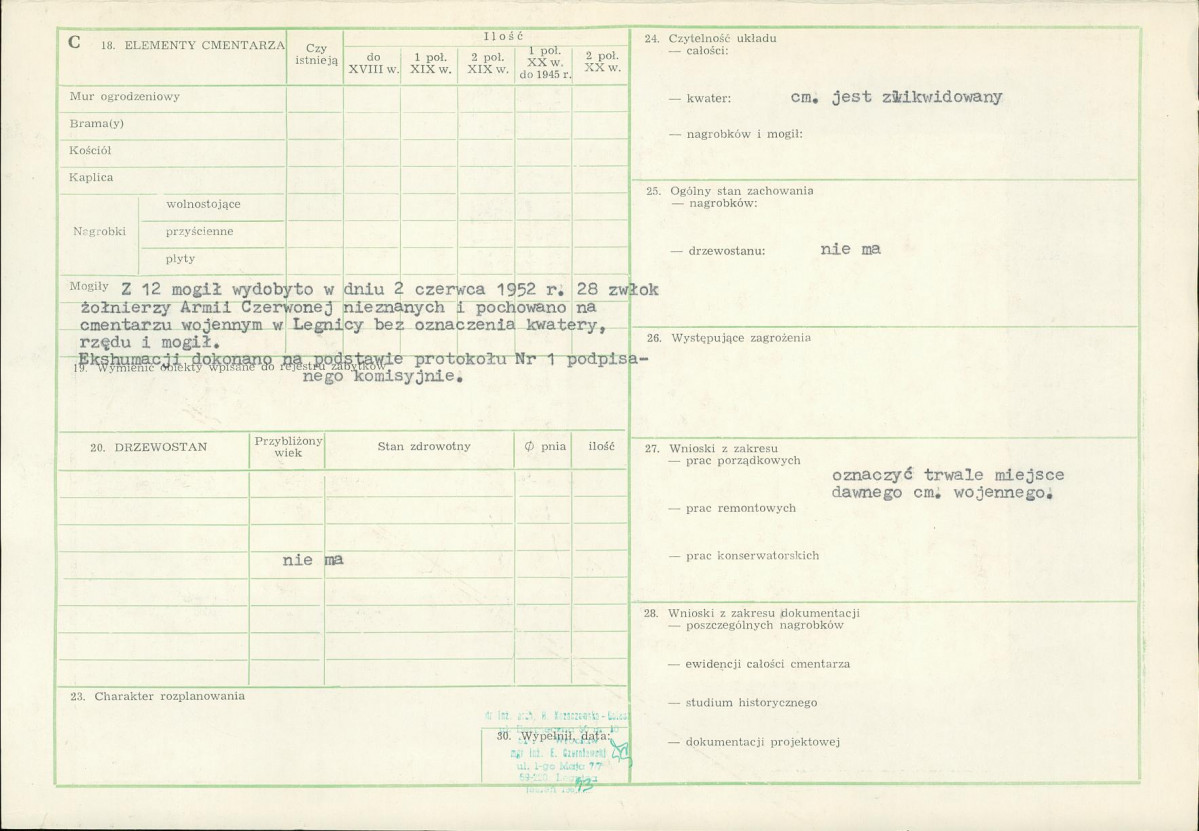 C 18. ELEMENTY CMENTARZA
Czy
istnieją
Ilość
do
XVIII w.
1 poł.
XIX w.
2 poł.
XIX w.
1 poł.
XX w.
do 1945 r.
2 poł.
XX w.
Mur ogrodzeniowy
Brama(y)
Kościół
Kaplica
Nagrobki
wolnostojące
przyścienne
płyty
Mogiły Z 12 mogił wydobyto w dniu 2 czerwca 1952 r. 28 zwłok
żołnierzy Armii Czerwonej nieznanych i pochowano na
cmentarzu wojennym w Legnicy bez oznaczenia kwatery,
rzędu i mogił.
Ekshumacji dokonano na podstawie protokołu Nr 1 podpisa-
19. Wymienić obiekty wpisane do rejestru zabytków
nego komisyjnie.
20. DRZEWOSTAN
Przybliżony
wiek
Stan zdrowotny
Ø pnia
ilość
nie ma
23. Charakter rozplanowania
30. Wypełnił, data:
mgr inż. E.
ul. 1-go Maja 77
93
24. Czytelność układu
— całości:
— kwater: cm. jest zlikwidowany
— nagrobków i mogił:
25. Ogólny stan zachowania
— nagrobków:
— drzewostanu: nie ma
26. Występujące zagrożenia
27. Wnioski z zakresu
— prac porządkowych
oznaczyć trwale miejsce
dawnego cm. wojennego.
— prac remontowych
— prac konserwatorskich
28. Wnioski z zakresu dokumentacji
— poszczególnych nagrobków
— ewidencji całości cmentarza
— studium historycznego
— dokumentacji projektowej